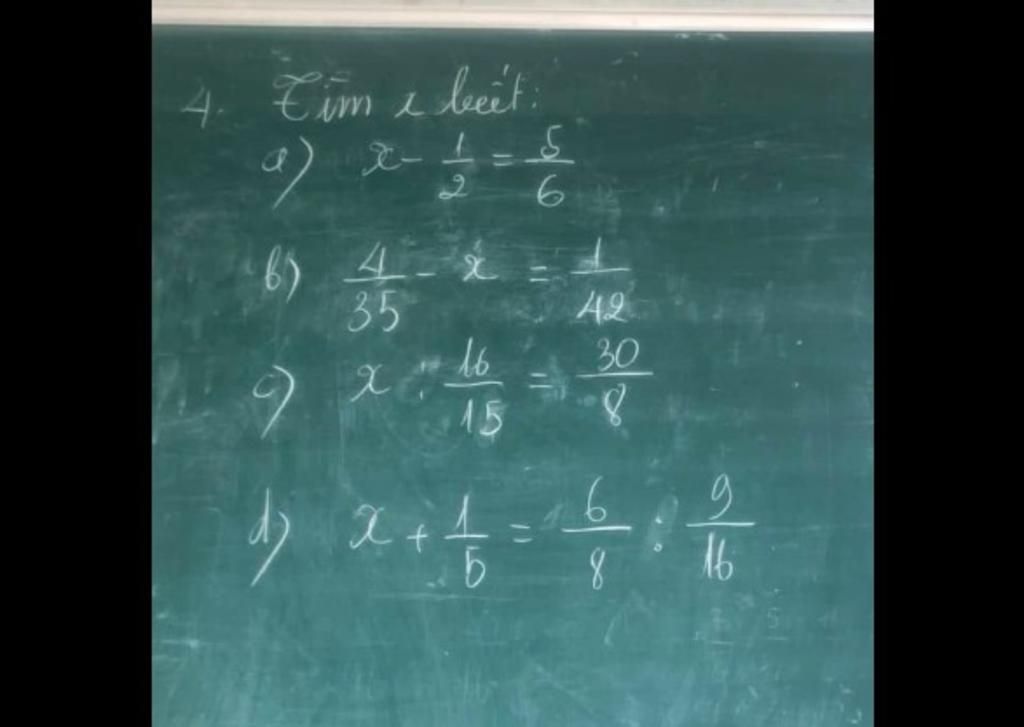 4. Tìm x biết:
a) x - 1/2 = 5/6
b) 4/35 - x = 1/42
c) x : 16/15 = 30/8
d) x + 1/5 = 6/8 : 9/16